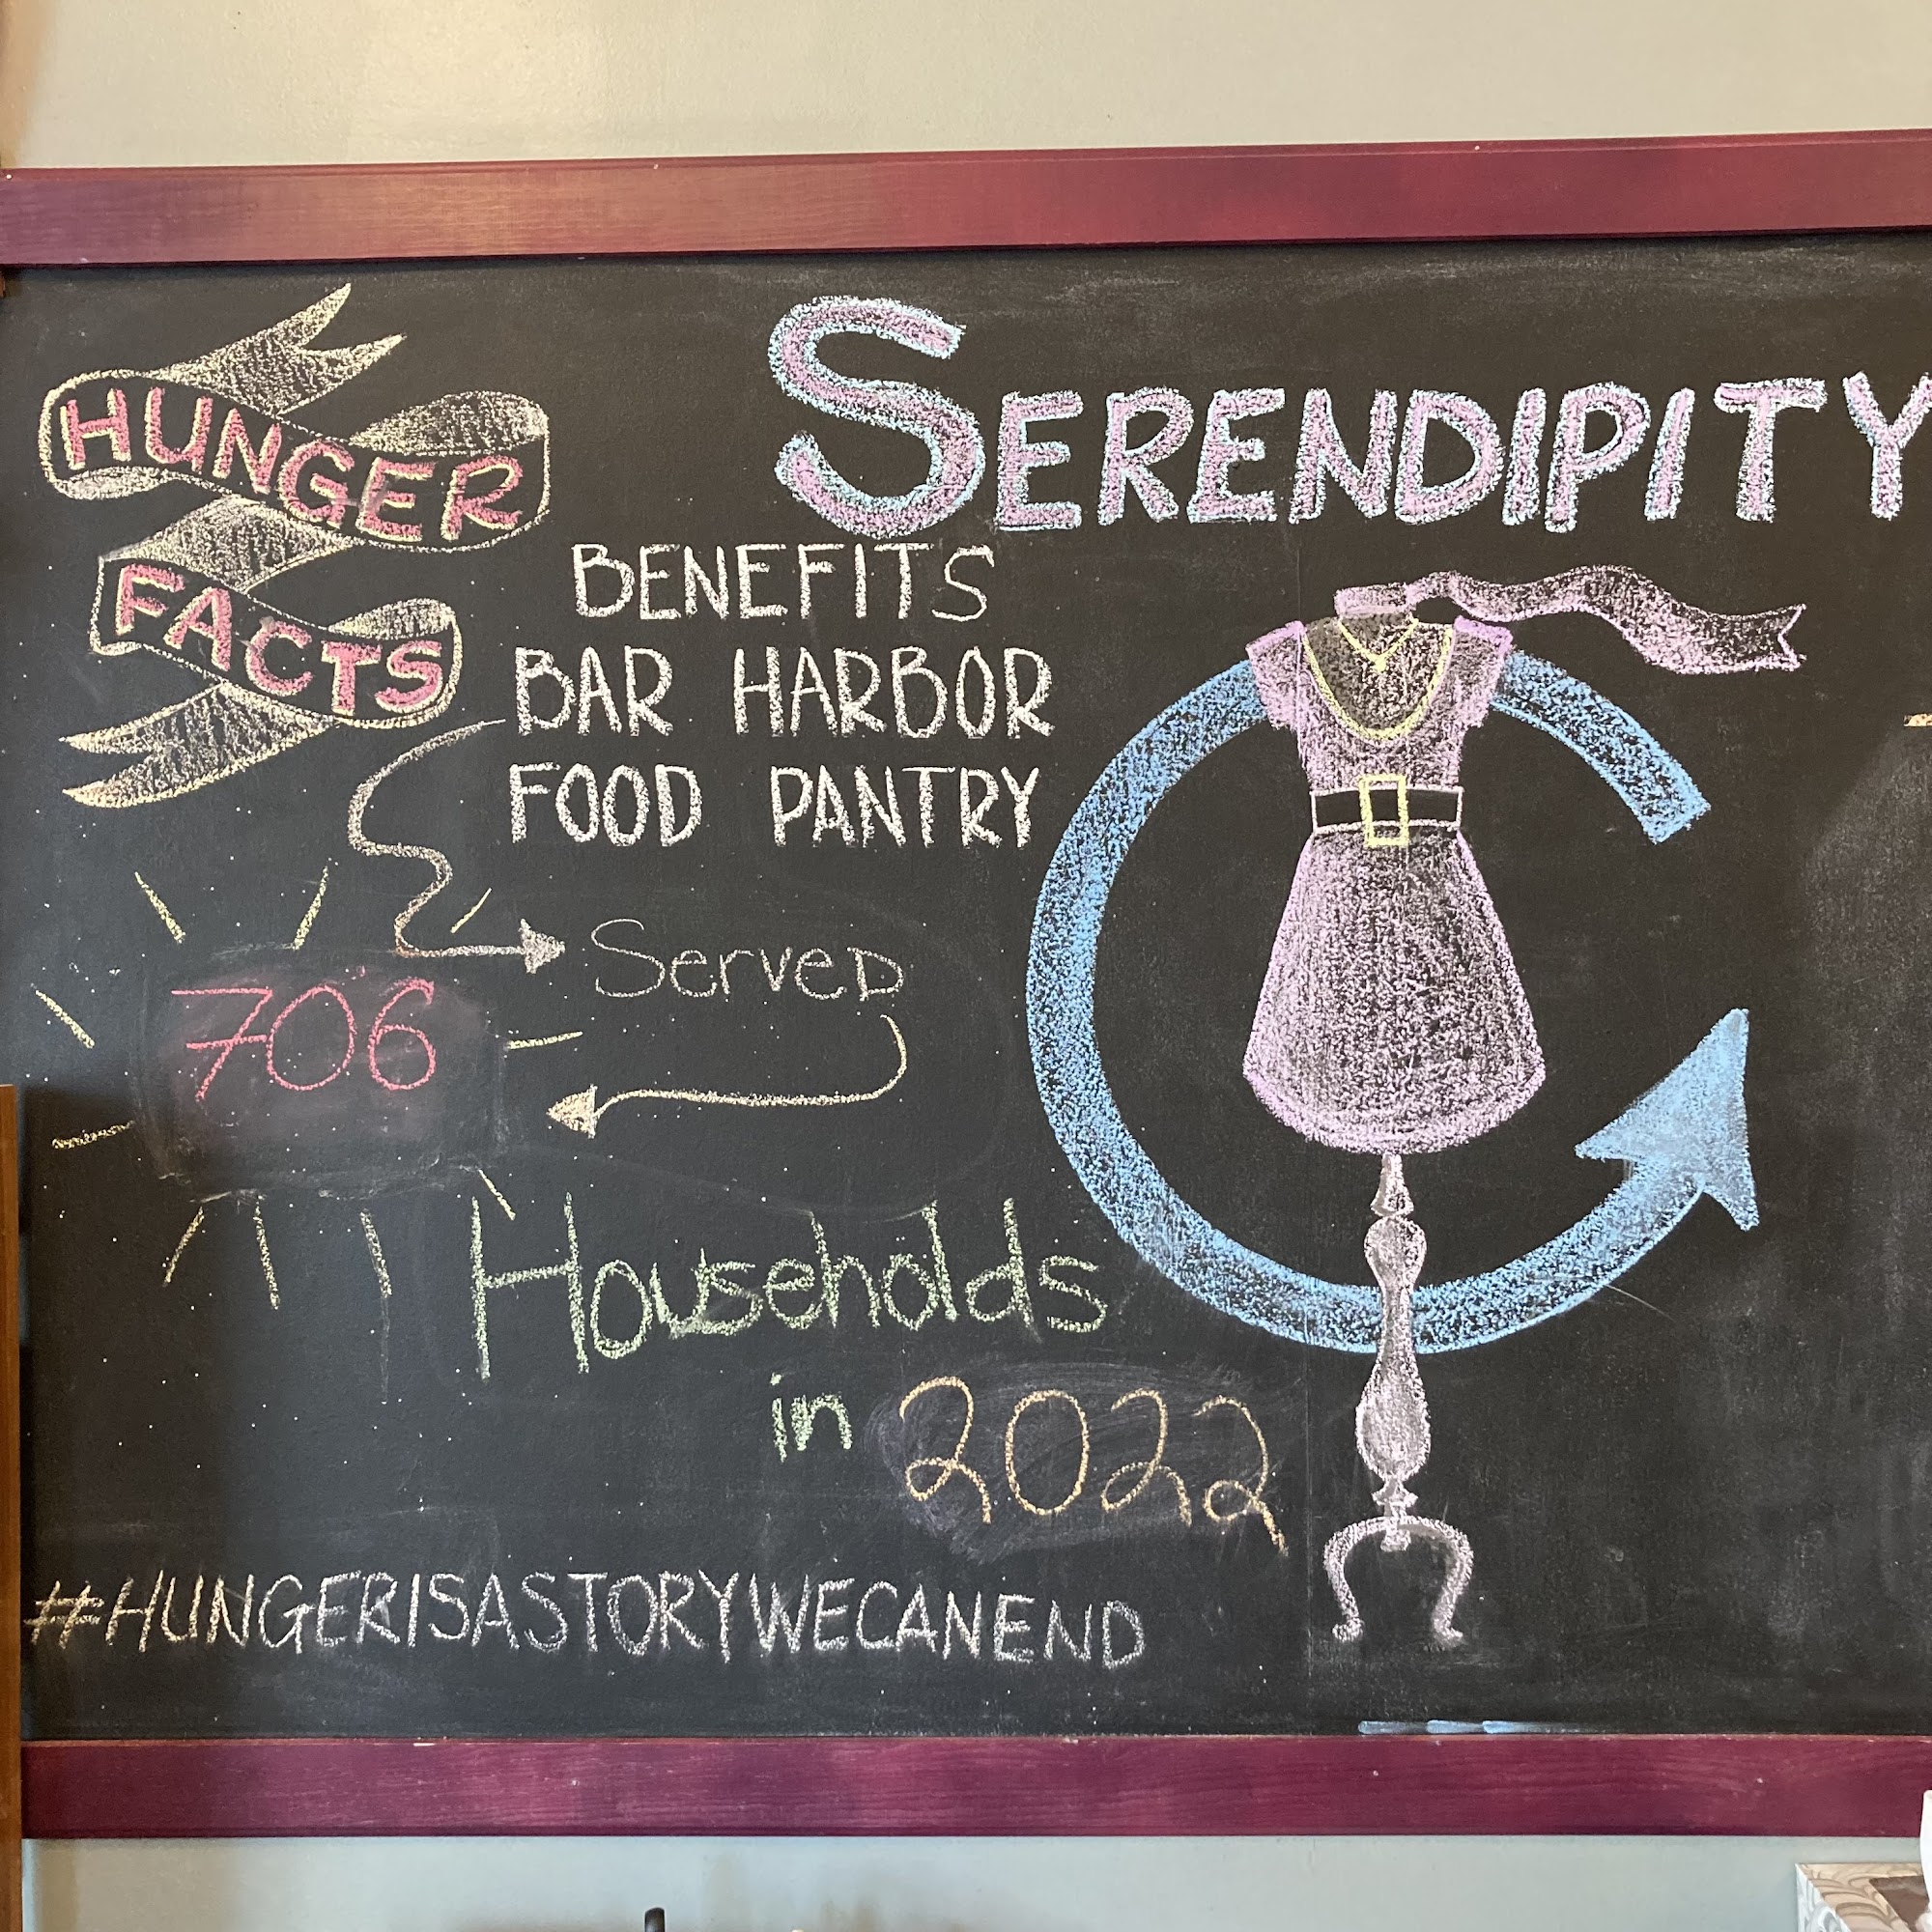 SERENDIPITY
HUNGER
FACTS
BENEFITS
BAR HARBOR
FOOD PANTRY
Served
706
Households
in 2022
#HUNGERISASTORYWECANEND